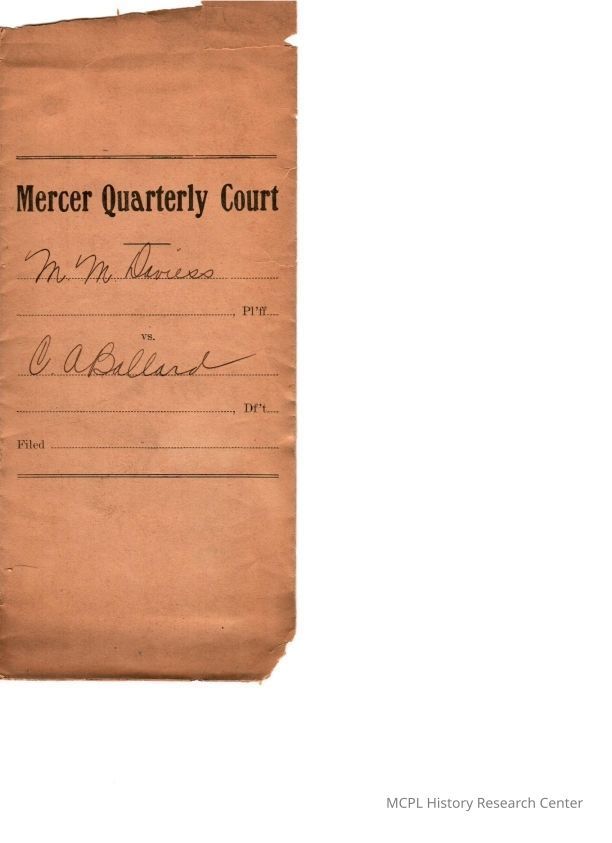 Mercer Quarterly Court
M. M. Daviess
, Pl'ff
vs.
C. A Ballard
, Df't
Filed
MCPL History Research Center